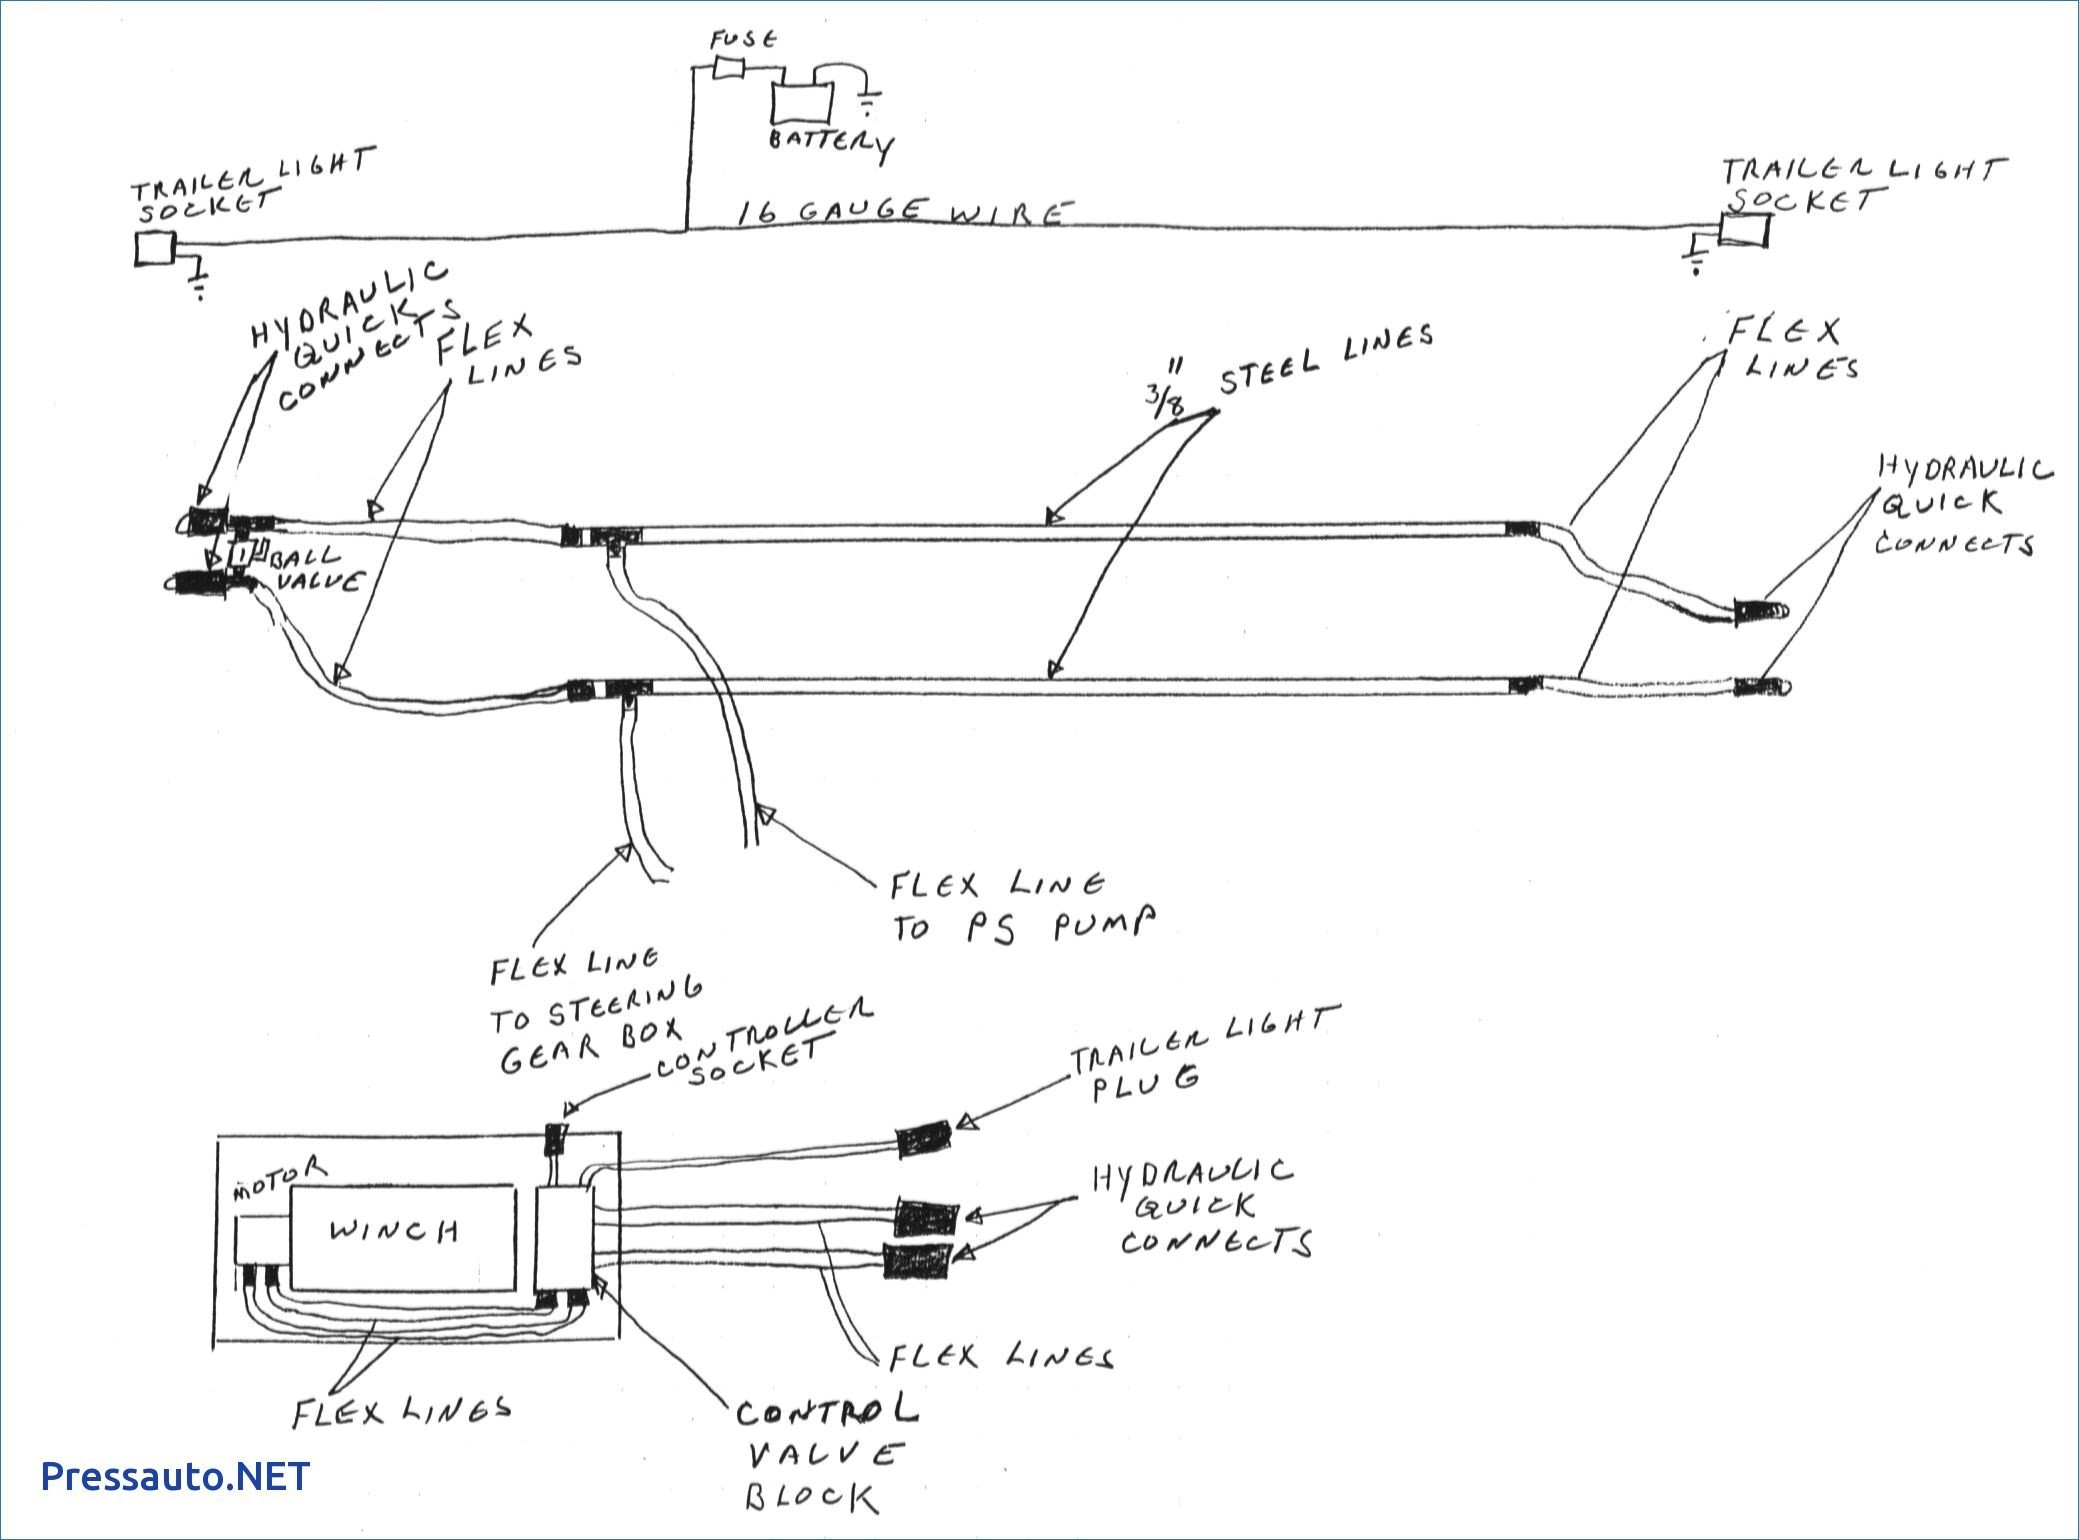 FUSE
BATTERY
TRAILER LIGHT
SOCKET
16 GAUGE WIRE
TRAILER LIGHT
SOCKET
HYDRAULIC
QUICK
CONNECTS
FLEX
LINES
3/8" STEEL LINES
FLEX
LINES
HYDRAULIC
QUICK
CONNECTS
BALL
VALVE
FLEX LINE
TO PS PUMP
FLEX LINE
TO STEERING
GEAR BOX
CONTROLLER
SOCKET
TRAILER LIGHT
PLUG
MOTOR
WINCH
HYDRAULIC
QUICK
CONNECTS
FLEX LINES
FLEX LINES
CONTROL
VALVE
BLOCK
Pressauto.NET